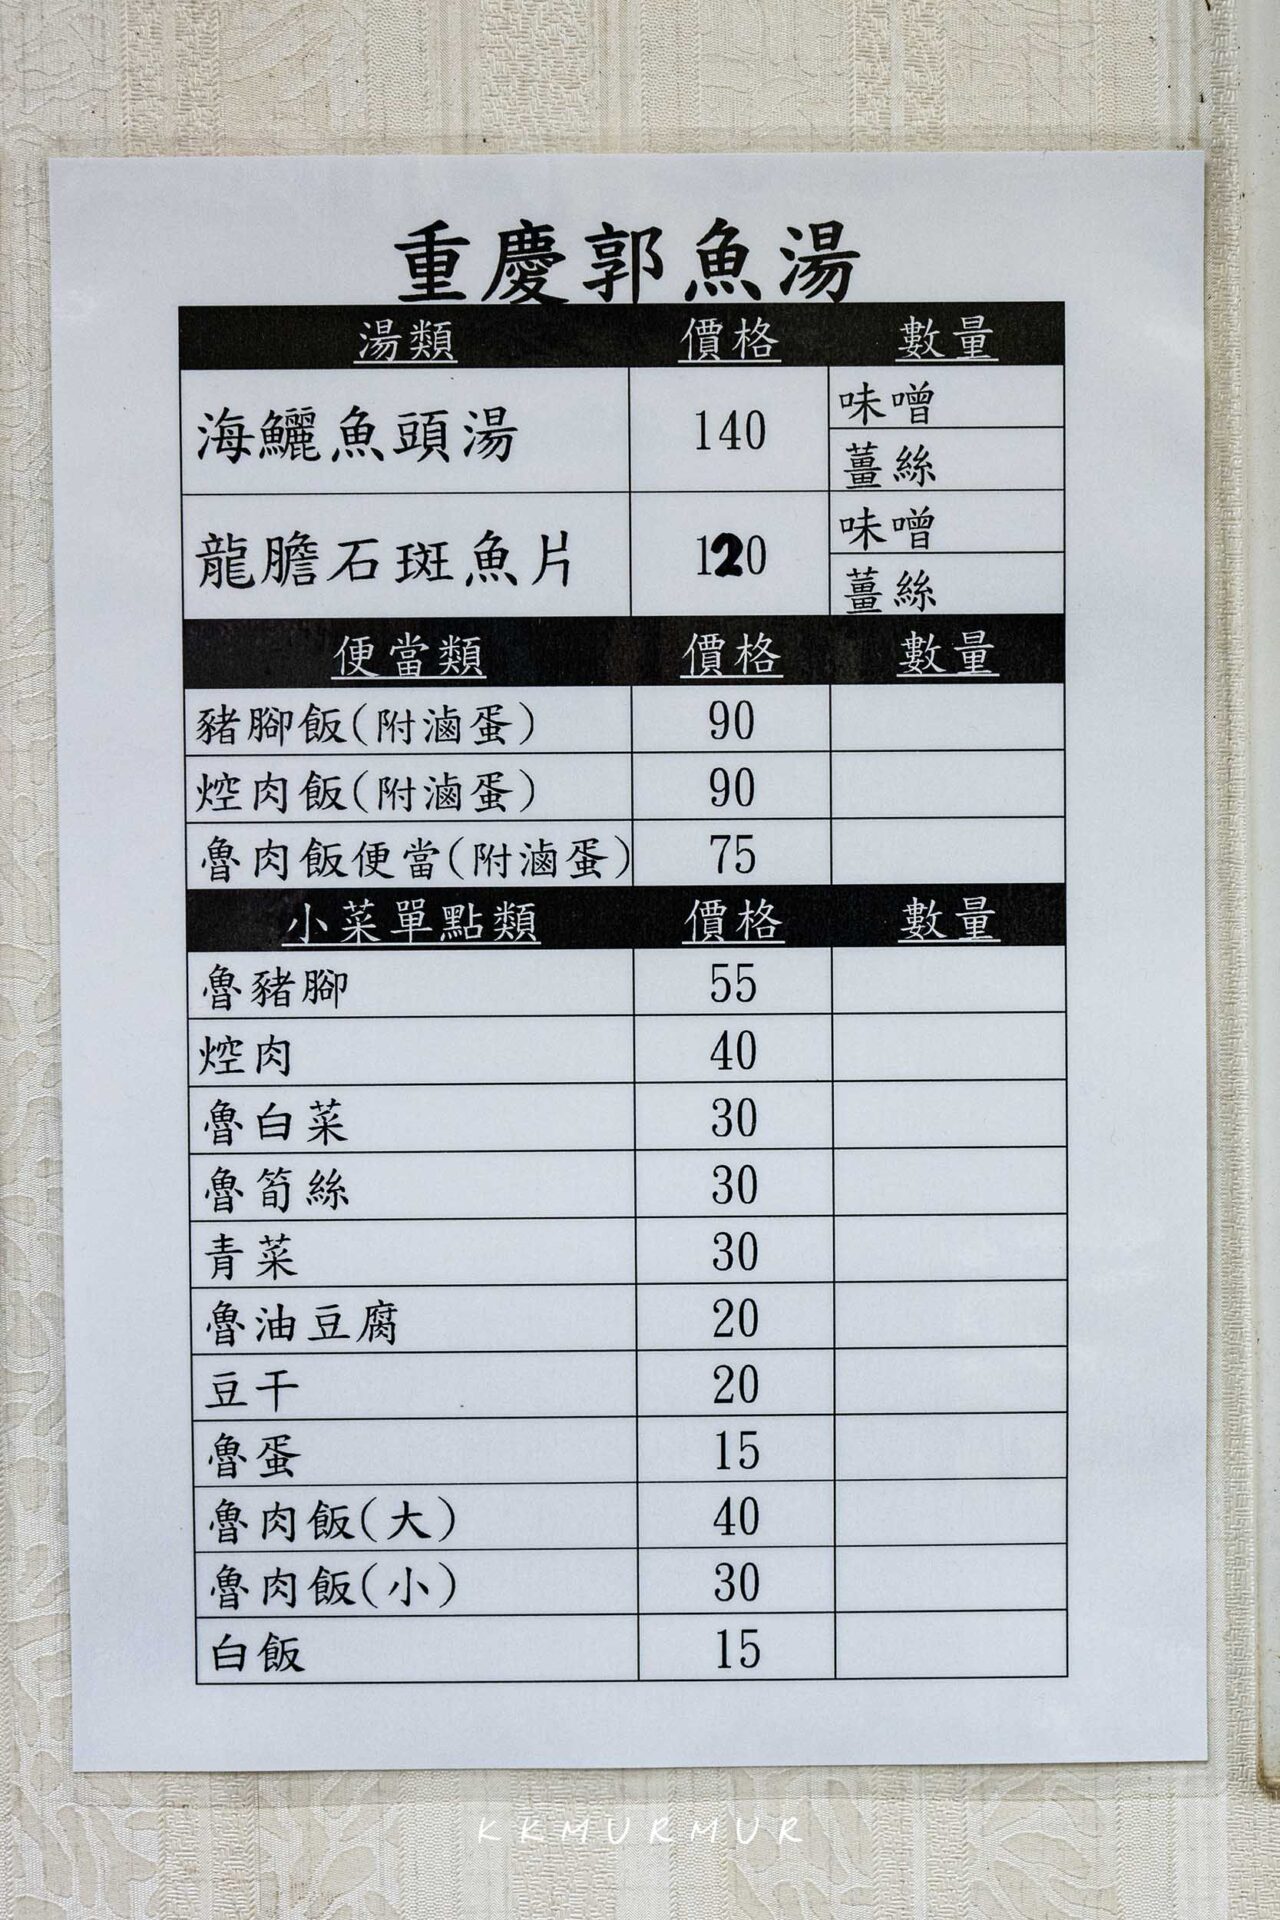 重慶郭魚湯
湯類 價格 數量
海鱺魚頭湯 140 味噌
薑絲
龍膽石斑魚片 120 味噌
薑絲
便當類 價格 數量
豬腳飯(附滷蛋) 90
焢肉飯(附滷蛋) 90
魯肉飯便當(附滷蛋) 75
小菜單點類 價格 數量
魯豬腳 55
焢肉 40
魯白菜 30
魯筍絲 30
青菜 30
魯油豆腐 20
豆干 20
魯蛋 15
魯肉飯(大) 40
魯肉飯(小) 30
白飯 15
KKMURMUR